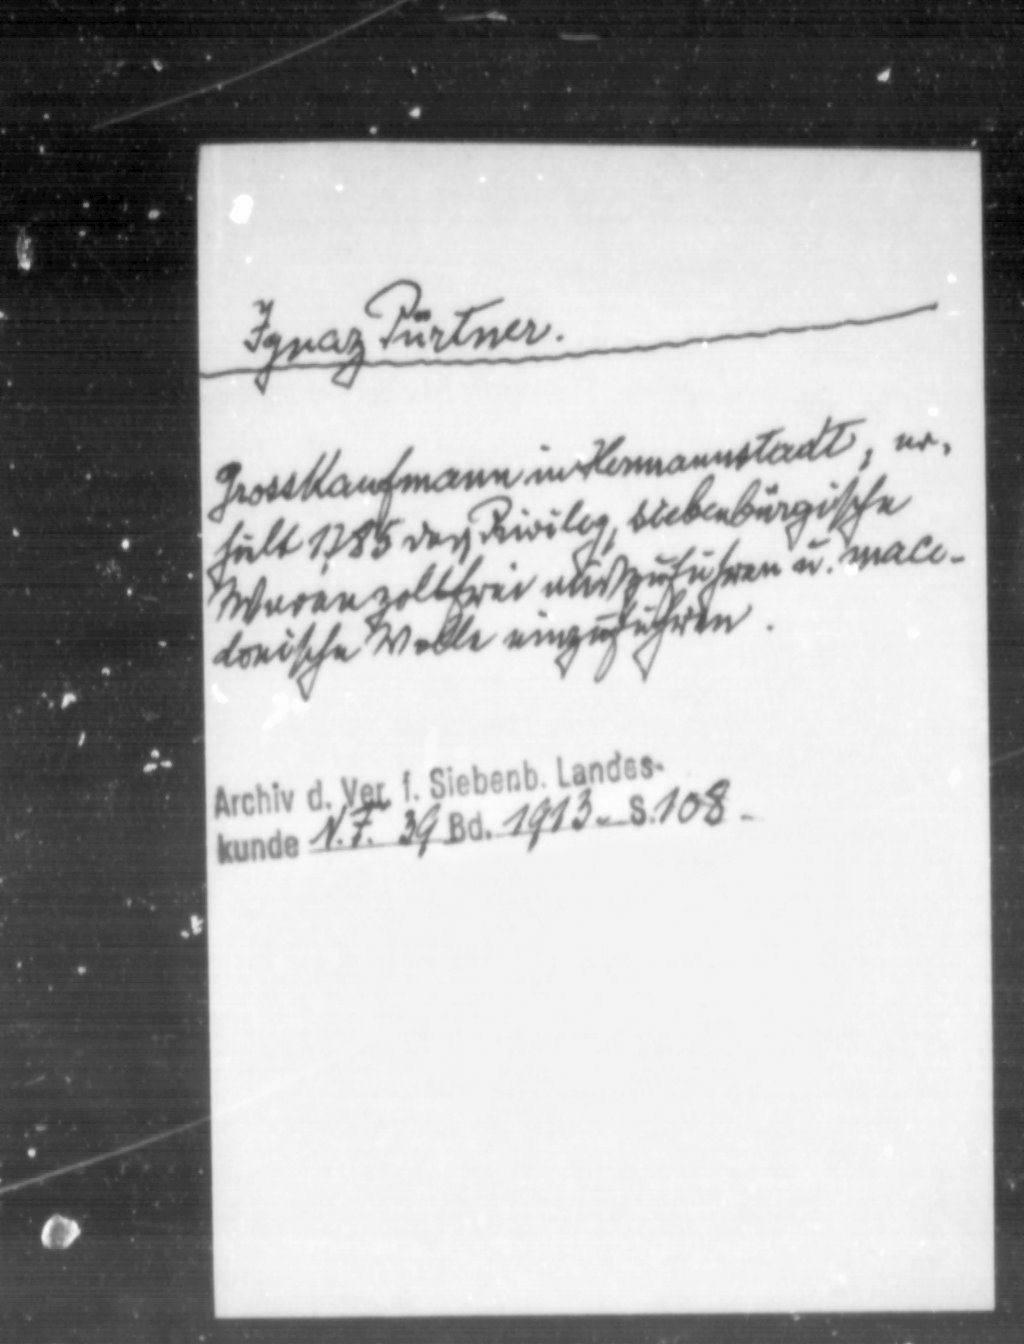 Ignaz Pürtner.
Grosskaufmann in Hermannstadt, er-
hält 1785 das Privileg, siebenbürgische
Waren zollfrei auszuführen u. mace-
donische Wolle einzuführen.
Archiv d. Ver. f. Siebenb. Landes-
kunde N.F. 39 Bd. 1913. S. 108.